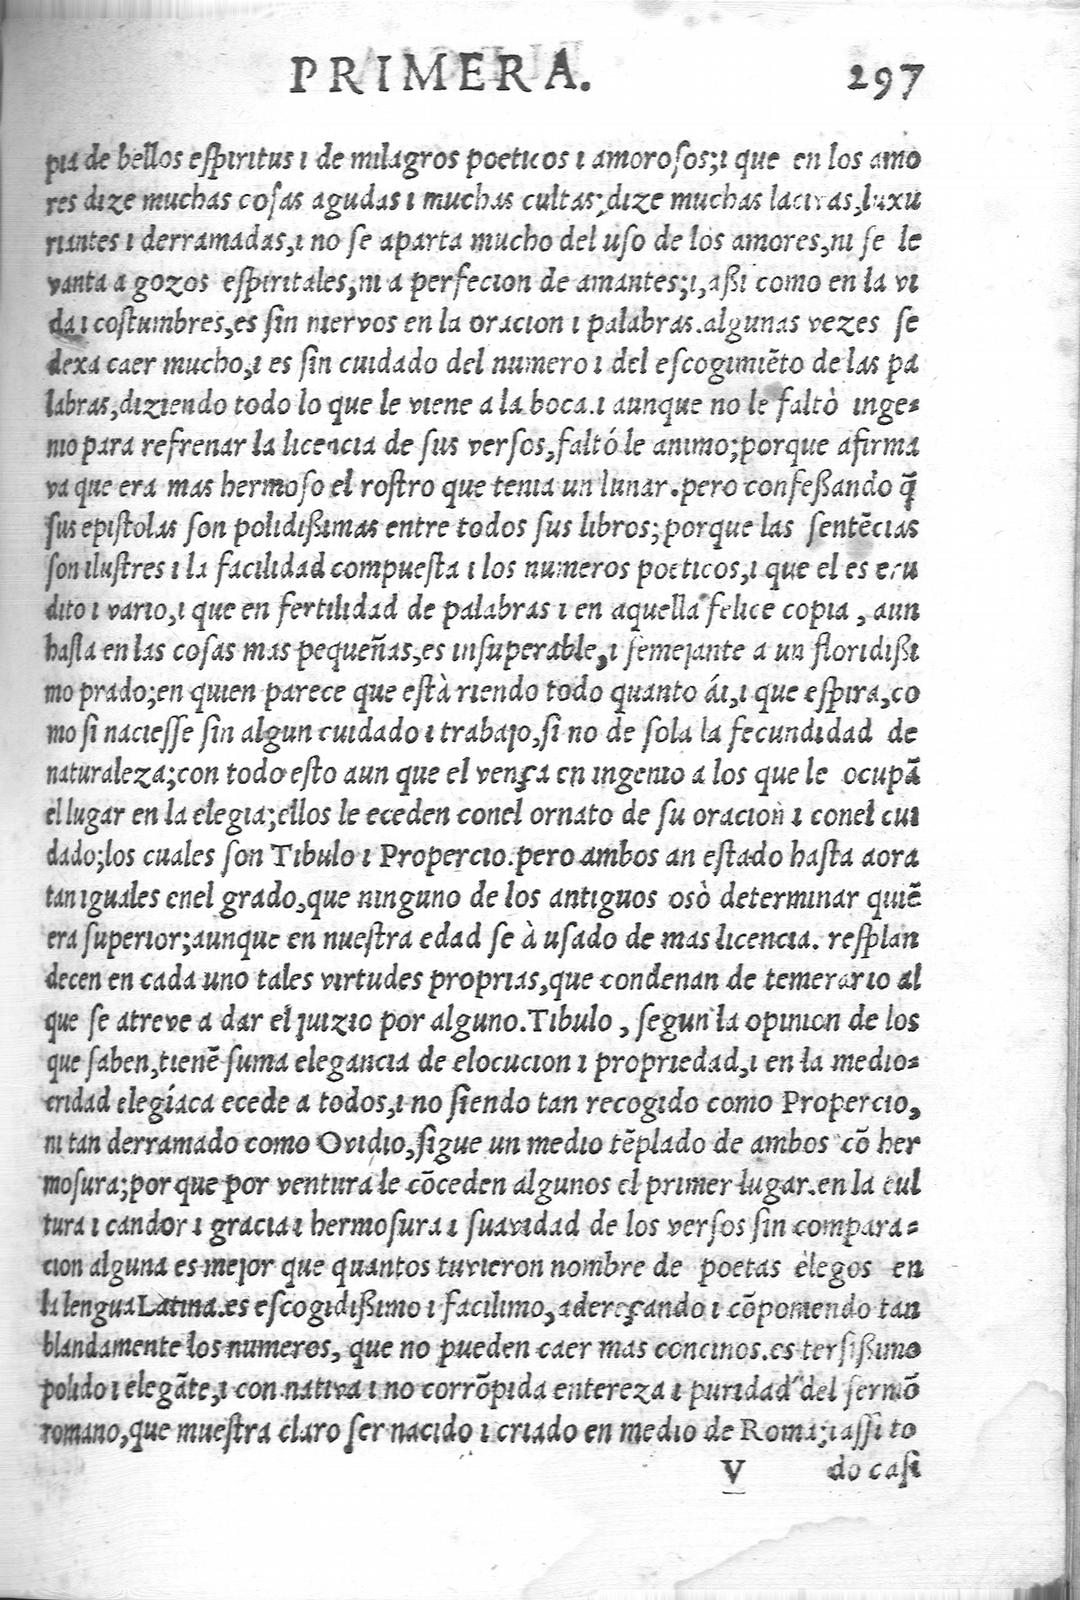 PRIMERA. 297
pia de bellos eſpiritus i de milagros poeticos i amoroſos;i que en los amo
res dize muchas coſas agudas i muchas cultas;dize muchas lacivas,luxu
riantes i derramadas,i no ſe aparta mucho del uſo de los amores,ni ſe le
vanta a gozos eſpiritales,ni a perfecion de amantes;i,aßi como en la vi
da i coſtumbres,es ſin niervos en la oracion i palabras.algunas vezes ſe
dexa caer mucho,i es ſin cuidado del numero i del eſcogimiẽto de las pa
labras,diziendo todo lo que le viene a la boca.i aunque no le faltò inge=
nio para refrenar la licencia de ſus verſos,faltó le animo;porque afirma
va que era mas hermoſo el roſtro que tenia un lunar.pero confeßando q̃
ſus epiſtolas ſon polidißimas entre todos ſus libros;porque las ſentẽcias
ſon iluſtres i la facilidad compueſta i los numeros poeticos,i que el es eru
dito i vario,i que en fertilidad de palabras i en aquella felice copia , aun
haſta en las coſas mas pequeñas,es inſuperable,i ſemejante a un floridißi
mo prado;en quien parece que eſtà riendo todo quanto ái,i que eſpira,co
mo ſi nacieſſe ſin algun cuidado i trabajo,ſi no de ſola la fecundidad de
naturaleza;con todo eſto aun que el vença en ingenio a los que le ocupã
el lugar en la elegia;ellos le eceden conel ornato de ſu oracion i conel cui
dado;los cuales ſon Tibulo i Propercio.pero ambos an eſtado haſta aora
tan iguales enel grado,que ninguno de los antiguos osò determinar quiẽ
era ſuperior;aunque en nueſtra edad ſe à uſado de mas licencia. reſplan
decen en cada uno tales virtudes proprias,que condenan de temerario al
que ſe atreve a dar el juizio por alguno.Tibulo , ſegun la opinion de los
que ſaben,tienẽ ſuma elegancia de elocucion i propriedad,i en la medio=
cridad elegíaca ecede a todos,i no ſiendo tan recogido como Propercio,
ni tan derramado como Ovidio,ſigue un medio tẽplado de ambos cõ her
moſura;por que por ventura le cõceden algunos el primer lugar.en la cul
tura i candor i gracia i hermoſura i ſuavidad de los verſos ſin compara=
cion alguna es mejor que quantos tuvieron nombre de poetas elegos en
la lengua Latina.es eſcogidißimo i facilimo,adereçando i cõponiendo tan
blandamente los numeros, que no pueden caer mas concinos.es terſißimo
polido i elegãte,i con nativa i no corrõpida entereza i puridad del ſermõ
romano,que mueſtra claro ſer nacido i criado en medio de Roma;iaſſi to
V do caſi